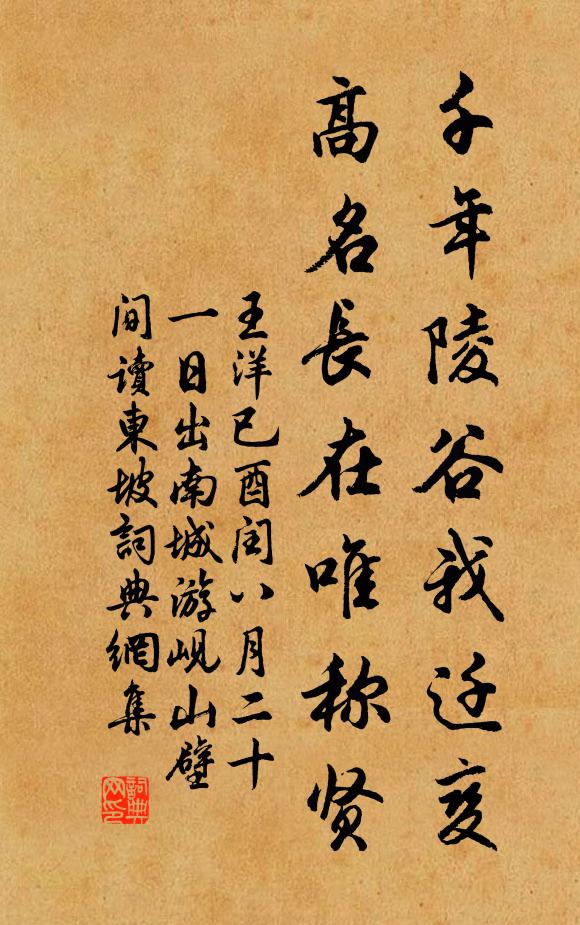 千年陵谷我迁变
高名長在唯称贤
王洋己酉闰八月二十
一日出南城游岘山壁
间讀東坡詞典網集
詞典
网印